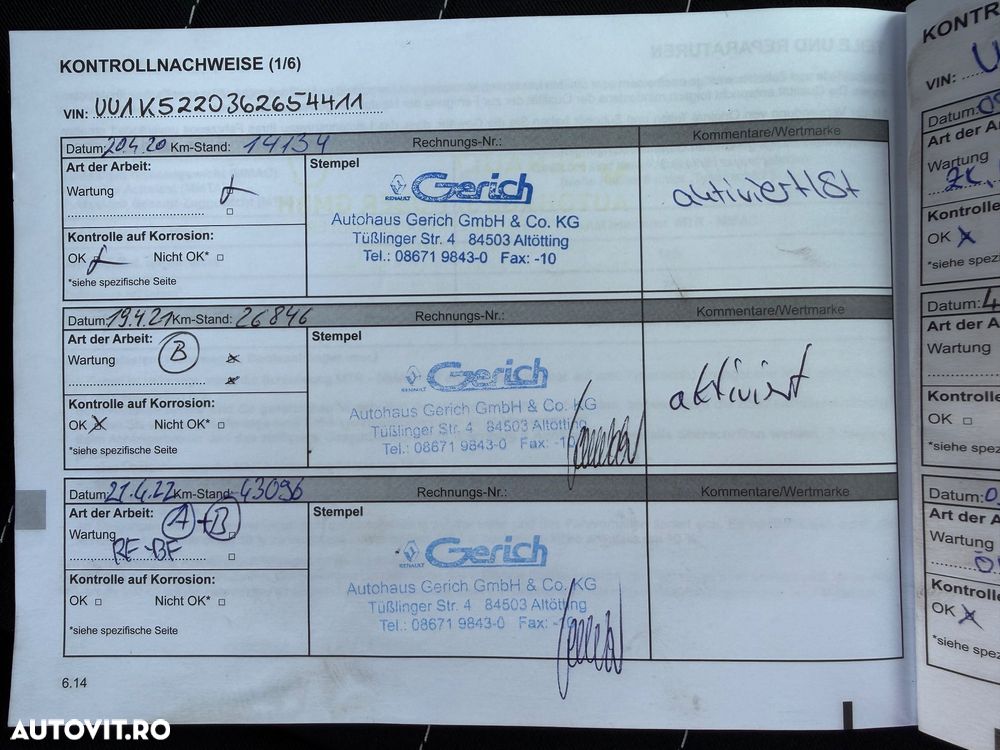 KONTROLLNACHWEISE (1/6)
VIN: UU1K5220362654411
Datum: 20.4.20 Km-Stand: 14134 Rechnungs-Nr.: Kommentare/Wertmarke
Art der Arbeit: Stempel
Wartung
RENAULT Gerich
aktiviert
Autohaus Gerich GmbH & Co. KG
Tüßlinger Str. 4 84503 Altötting
Tel.: 08671 9843-0 Fax: -10
Kontrolle auf Korrosion:
OK Nicht OK*
*siehe spezifische Seite
Datum: 19.4.21 Km-Stand: 26846 Rechnungs-Nr.: Kommentare/Wertmarke
Art der Arbeit: Stempel
Wartung B
RENAULT Gerich
aktiviert
Autohaus Gerich GmbH & Co. KG
Tüßlinger Str. 4 84503 Altötting
Tel.: 08671 9843-0 Fax: -10
Kontrolle auf Korrosion:
OK Nicht OK*
*siehe spezifische Seite
Datum: 21.4.22 Km-Stand: 43096 Rechnungs-Nr.: Kommentare/Wertmarke
Art der Arbeit: Stempel
Wartung A+B
RF-BF
RENAULT Gerich
Autohaus Gerich GmbH & Co. KG
Tüßlinger Str. 4 84503 Altötting
Tel.: 08671 9843-0 Fax: -10
Kontrolle auf Korrosion:
OK Nicht OK*
*siehe spezifische Seite
6.14
KONTR
VIN:
Datum:
Art der A
Wartung
Kontrolle
OK
*siehe spezi
Datum: 4
Art der A
Wartung
Kontrolle
OK
*siehe spez
Datum:
Art der A
Wartung
Kontrolle
OK
*siehe spez
AUTOVIT.RO